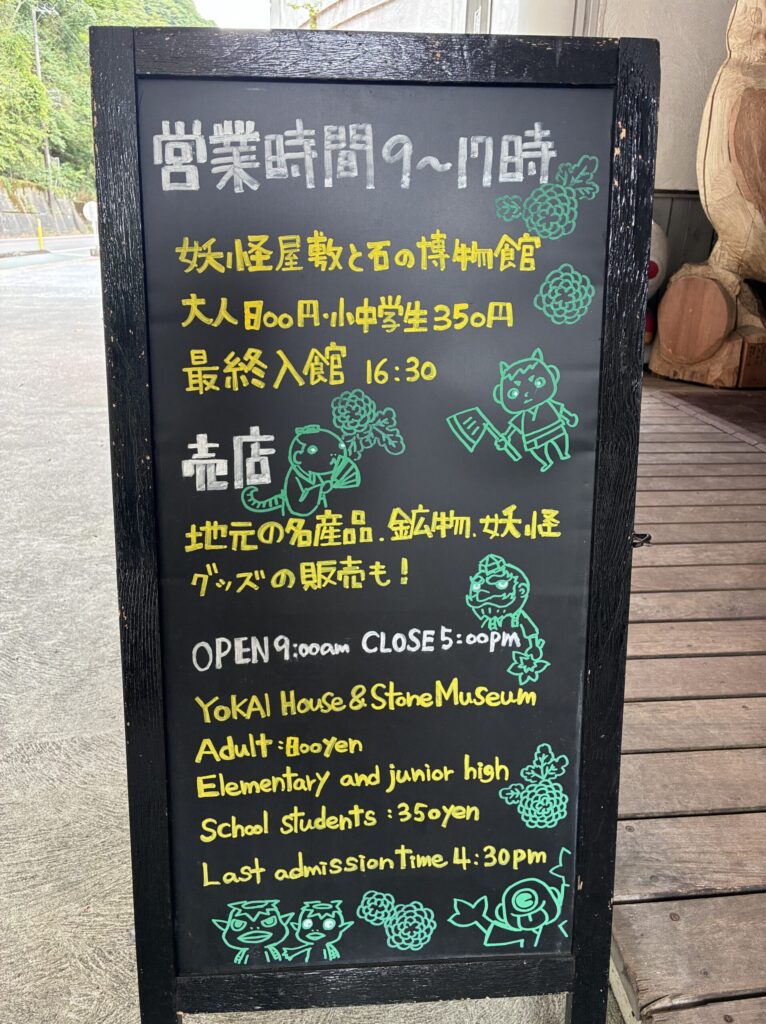 営業時間9〜17時
妖怪屋敷と石の博物館
大人800円・小中学生350円
最終入館 16:30
売店
地元の名産品、鉱物、妖怪
グッズの販売も!
OPEN 9:00am CLOSE 5:00pm
YOKAI House & Stone Museum
Adult:800yen
Elementary and junior high
School students:350yen
Last admission time 4:30pm